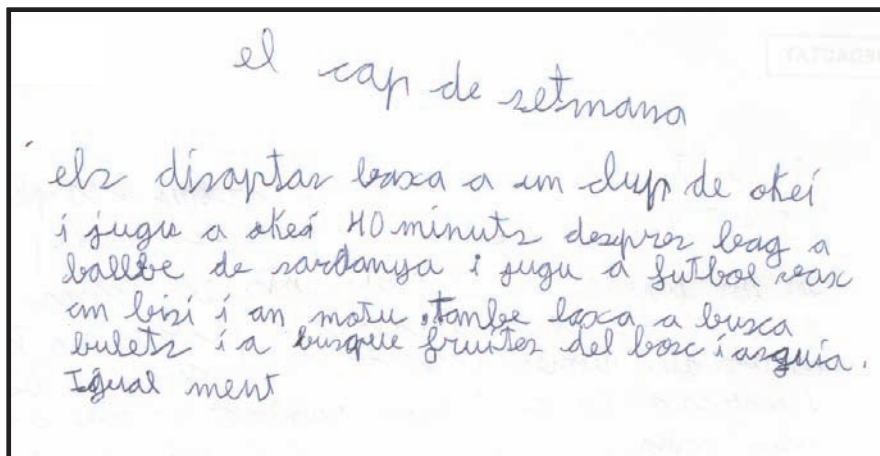 el cap de setmana
els disaptas baxa a un clup de okei
i jugu a okei 40 minuts despres bag a
ballbe de sardanya i jugu a futbol vax
am bizi i an motu. tambe baxa a busca
bulets i a busque fruites del bosc i asquia.
Igual ment